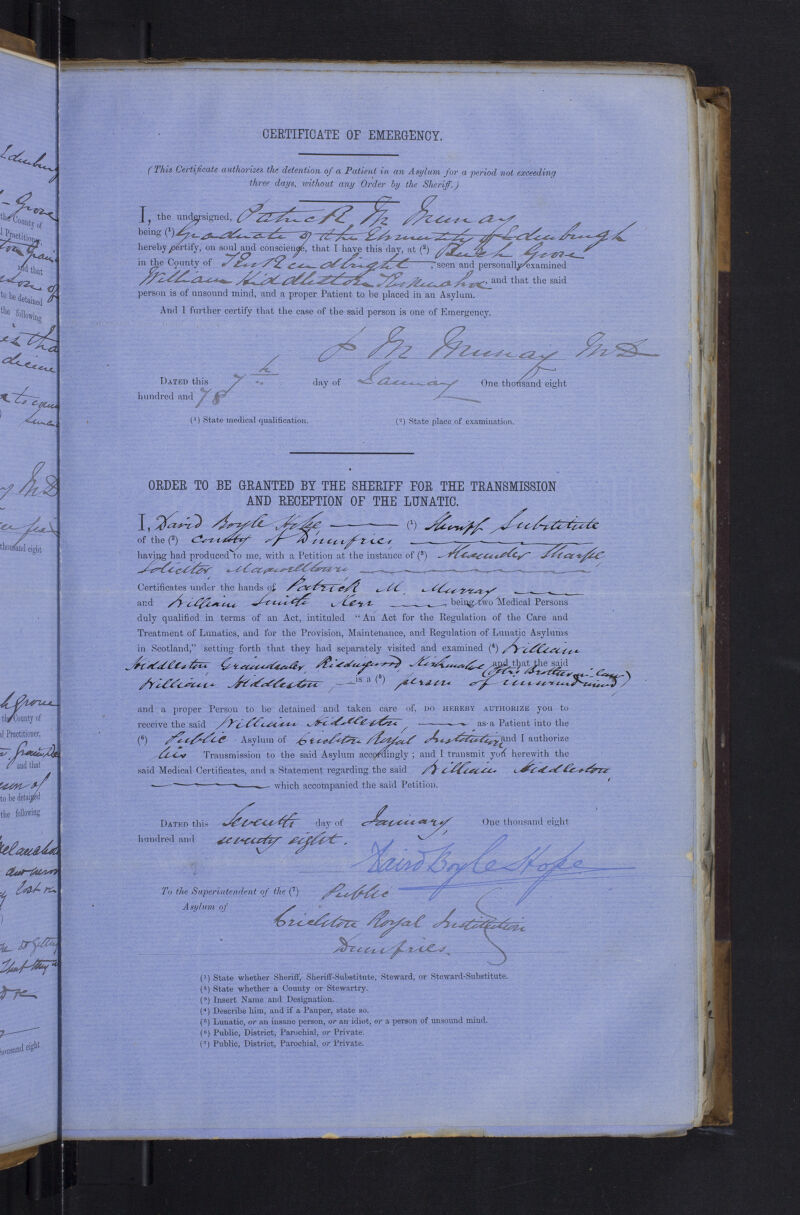 CERTIFICATE OF EMERGENCY.
(This Certificate authorizes the detention of a Patient in an Asylum for a period not exceeding
three days, without any Order by the Sheriff.)
I, the undersigned, Patrick M. Murray
being (¹) Graduate of the University of Edinburgh
hereby certify, on soul and conscience, that I have this day, at (²) Grove
in the County of Kirkcudbright, seen and personally examined
William Hiddleston Kirkmahoe and that the said
person is of unsound mind, and a proper Patient to be placed in an Asylum.
And I further certify that the case of the said person is one of Emergency.
P M Murray MD
DATED this 7th day of January One thousand eight
hundred and 78
(¹) State medical qualification. (²) State place of examination.
ORDER TO BE GRANTED BY THE SHERIFF FOR THE TRANSMISSION
AND RECEPTION OF THE LUNATIC.
I, David Boyle Hope (¹) Sheriff Substitute
of the (²) County of Dumfries
having had produced to me, with a Petition at the instance of (³) Alexander Sharpe,
Solicitor, Maxwelltown
Certificates under the hands of Patrick M. Murray
and William Smith Kerr being two Medical Persons
duly qualified in terms of an Act, intituled "An Act for the Regulation of the Care and
Treatment of Lunatics, and for the Provision, Maintenance, and Regulation of Lunatic Asylums
in Scotland," setting forth that they had separately visited and examined (⁴) William
Hiddleston Graindealer Kirkmahoe and that the said
(Brother in law)
William Hiddleston, is a (⁵) person of unsound mind
and a proper Person to be detained and taken care of, DO HEREBY AUTHORIZE you to
receive the said William Hiddleston, as a Patient into the
(⁶) Public Asylum of Crichton Royal Institution and I authorize
his Transmission to the said Asylum accordingly; and I transmit you herewith the
said Medical Certificates, and a Statement regarding the said William Hiddleston,
which accompanied the said Petition.
DATED this Seventh day of January, One thousand eight
hundred and seventy eight.
David Boyle Hope
To the Superintendent of the (⁷) Public
Asylum of
Crichton Royal Institution
Dumfries.
(¹) State whether Sheriff, Sheriff-Substitute, Steward, or Steward-Substitute.
(²) State whether a County or Stewartry.
(³) Insert Name and Designation.
(⁴) Describe him, and if a Pauper, state so.
(⁵) Lunatic, or an insane person, or an idiot, or a person of unsound mind.
(⁶) Public, District, Parochial, or Private.
(⁷) Public, District, Parochial, or Private.